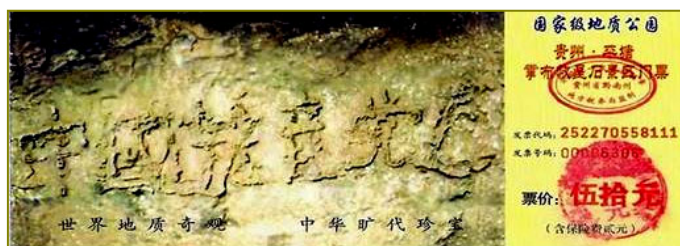 世界地质奇观 中华旷代珍宝
国家级地质公园
贵州·平塘
掌布藏字石景区门票
贵州省黔南州
发票代码：252270558111
发票号码：00006306
票价：伍拾元
（含保险费贰元）